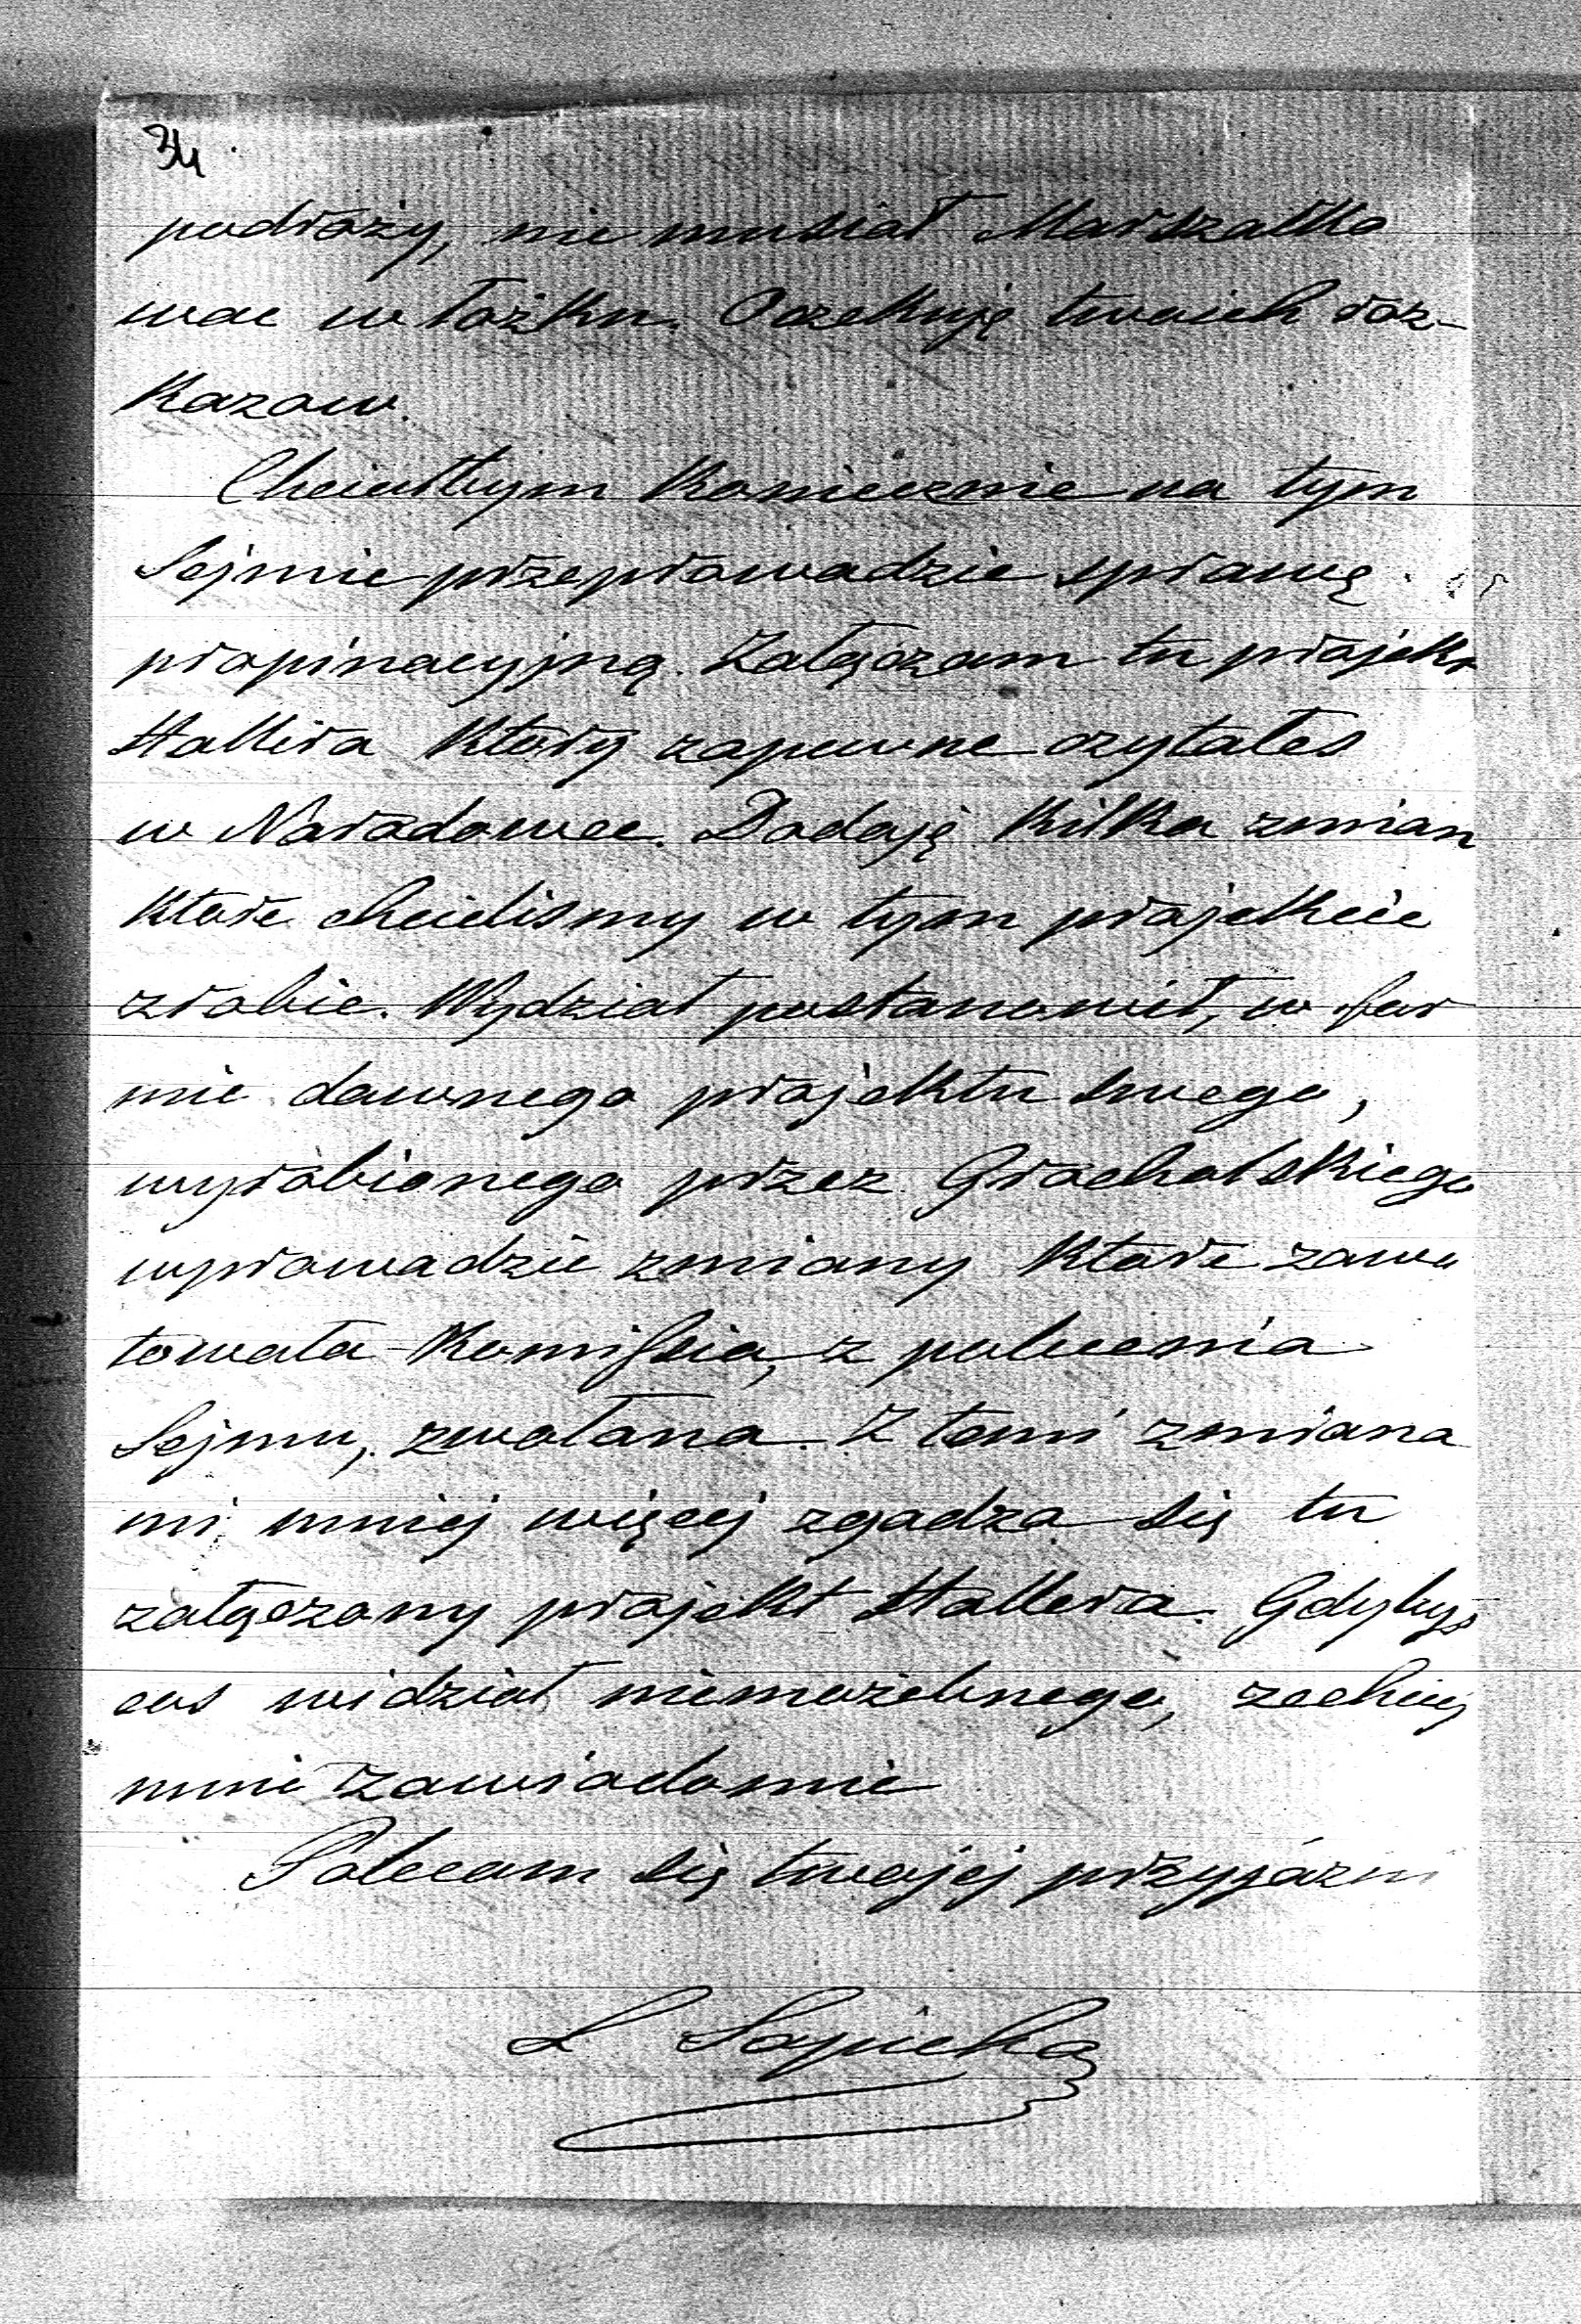 34
podróży, nie musiał Marszałko
wac w łóżku. Oczekuję twoich roz-
kazow.
Chciałbym koniecznie na tym
Sejmie przeprowadzic sprawę
propinacyjną. Załączam tu projekt
Hallera który zapewne czytałes
w Narodowce. Dodaję kilka zmian
które chcielismy w tym projekcie
zrobic. Wydział postanowił, w for
mie dawnego projektu swego,
wyrobionego przez Grocholskiego
wprowadzic zmiany które zawo
towała Komissia, z polecenia
Sejmu, zwołana. Z temi zmiana
mi, mniej więcej zgadza się tu
załączony projekt Hallera. Gdybyś
cos widział niemożebnego, zechciej
mnie zawiadomic
Polecam się twojej przyjázni
L Sapieha